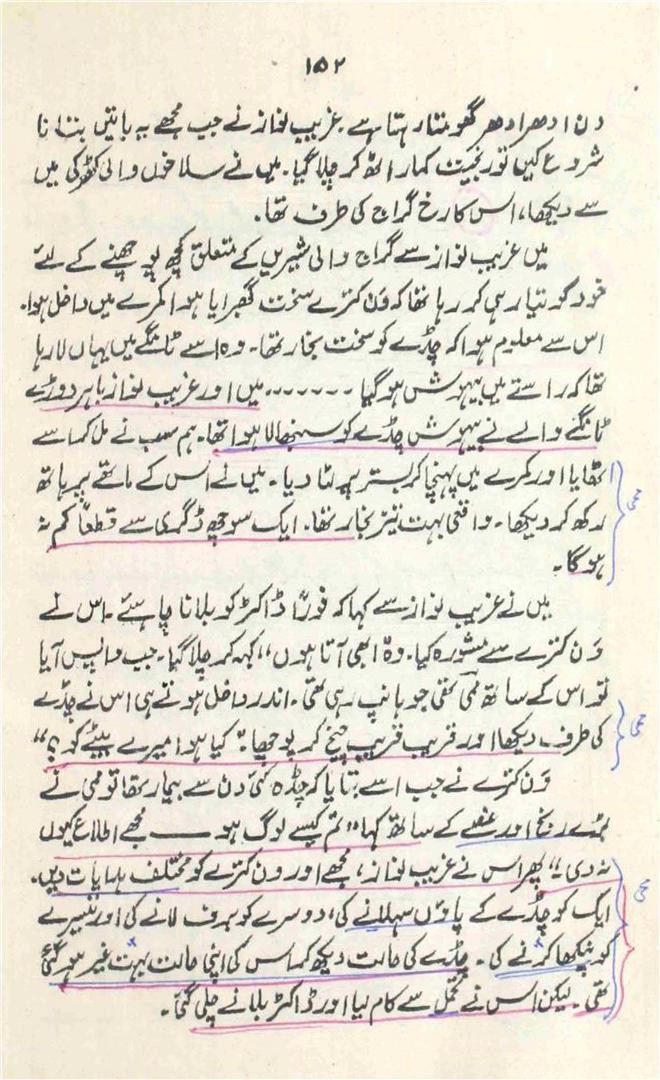 ۱۵۲
دن ادھر ادھر گھومتا رہتا ہے۔ غریب نواز نے جب مجھے یہ باتیں بتانا
شروع کیں تو رنجیت کمار اٹھ کر چلا گیا۔ میں نے سلاخوں والی کھڑکی میں
سے دیکھا، اس کا رخ گراج کی طرف تھا۔
میں غریب نواز سے گراج والی شیریں کے متعلق کچھ پوچھنے کے لئے
خود کو تیار ہی کر رہا تھا کہ وَن کترے سخت گھبرایا ہوا کمرے میں داخل ہوا۔
اس سے معلوم ہوا کہ چڈے کو سخت بخار تھا۔ وہ اسے ٹانگے میں یہاں لا رہا
تھا کہ راستے میں بیہوش ہو گیا ۔۔۔۔۔۔۔ میں اور غریب نواز باہر دوڑے
ٹانگے والے نے بیہوش چڈے کو سنبھالا ہوا تھا۔ ہم سب نے مل کر اسے
اٹھایا اور کمرے میں پہنچا کر بستر پر لٹا دیا۔ میں نے اس کے ماتھے پر ہاتھ
رکھ کر دیکھا۔ واقعی بہت تیز بخار تھا۔ ایک سو چھ ڈگری سے قطعاً کم نہ
ہوگا۔
میں نے غریب نواز سے کہا کہ فوراً ڈاکٹر کو بلانا چاہئے۔ اس نے
وَن کترے سے مشورہ کیا۔ وہ "ابھی آتا ہوں" کہہ کر چلا گیا۔ جب واپس آیا
تو اس کے ساتھ ممی تھی جو ہانپ رہی تھی۔ اندر داخل ہوتے ہی اس نے چڈے
کی طرف دیکھا اور قریب قریب چیخ کر پوچھا: "کیا ہوا میرے بیٹے کو؟"
وَن کترے نے جب اسے بتایا کہ چڈہ کئی دن سے بیمار تھا تو ممی نے
بڑے رنج اور غصے کے ساتھ کہا "تم کیسے لوگ ہو — مجھے اطلاع کیوں
نہ دی۔" پھر اس نے غریب نواز، مجھے اور ون کترے کو مختلف ہدایات دیں۔
ایک کو چڈے کے پاؤں سہلانے کی، دوسرے کو برف لانے کی اور تیسرے
کو پنکھا کرنے کی۔ چڈے کی حالت دیکھ کر اس کی اپنی حالت بہت غیر ہو گئی
تھی۔ لیکن اس نے تحمل سے کام لیا اور ڈاکٹر بلانے چلی گئی۔